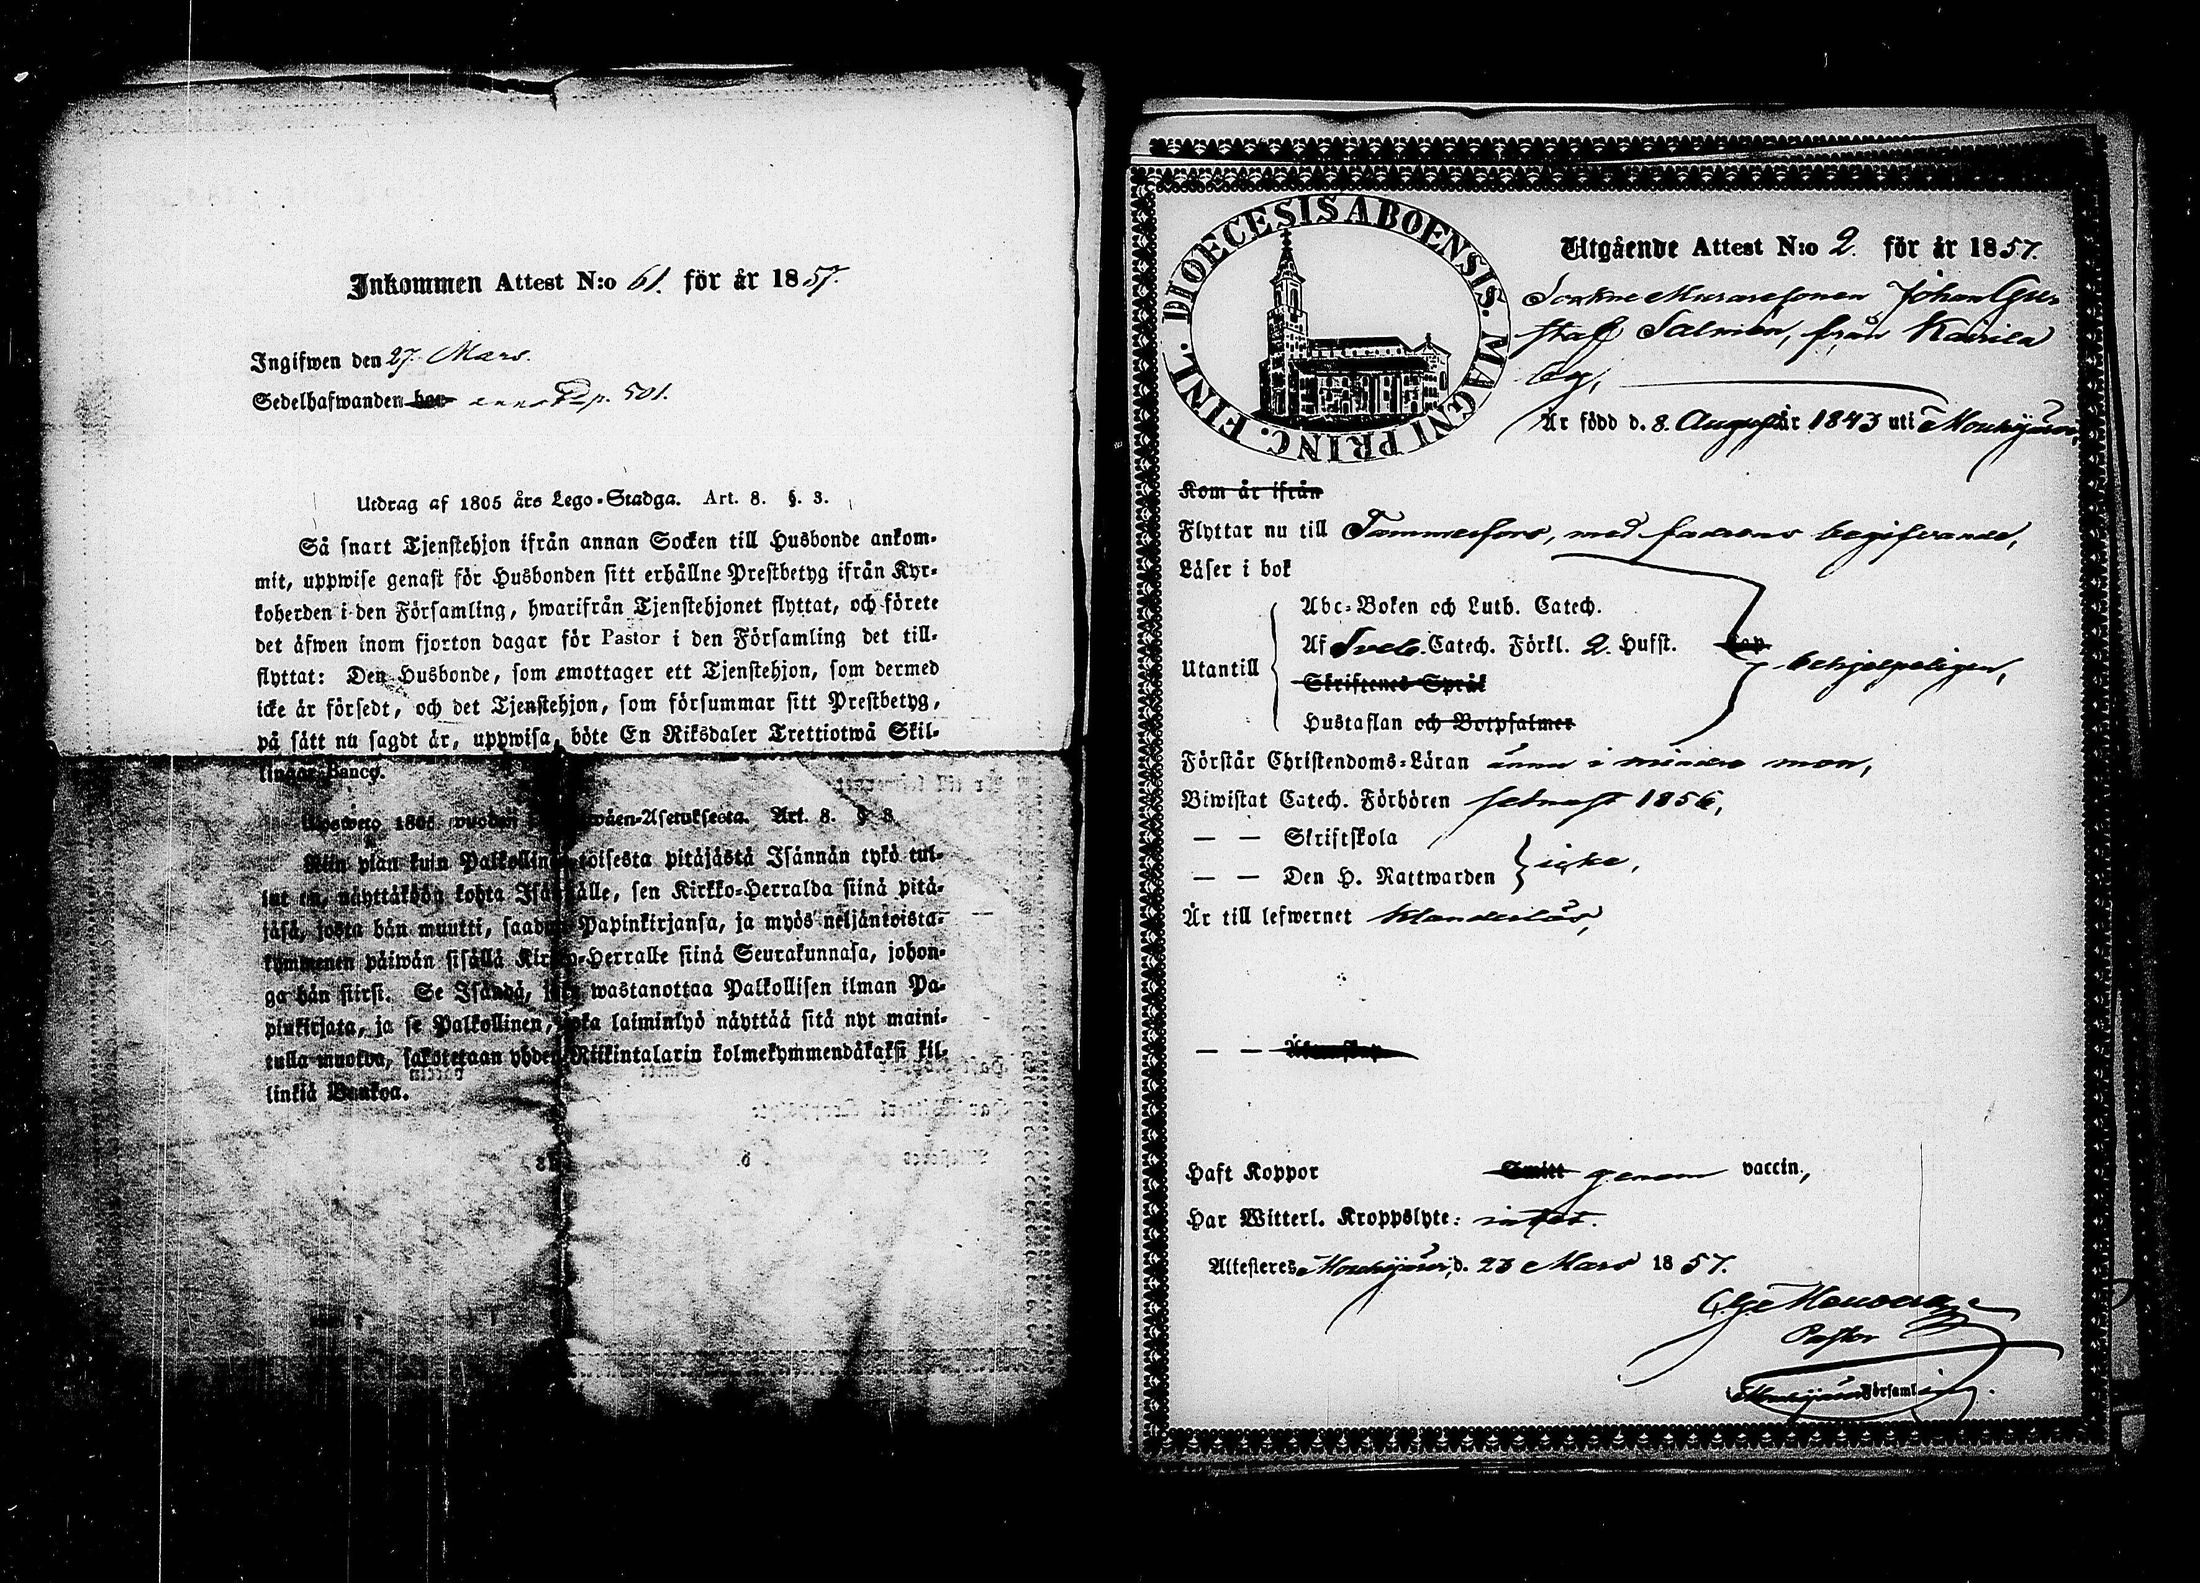 Inkommen Attest N:o 61. för år 1857.
Ingifwen den 27. Mars.
Sedelhafwanden har p. 501.
Utdrag af 1805 års Lego-Stadga. Art. 8. §. 3.
Så snart Tjenstehjon ifrån annan Socken till Husbonde ankom-
mit, uppwise genast för Husbonden sitt erhållne Prestbetyg ifrån Kyr-
koherden i den Församling, hwarifrån Tjenstehjonet flyttat, och förete
det äfwen inom fjorton dagar för Pastor i den Församling det till-
flyttat: Den Husbonde, som emottager ett Tjenstehjon, som dermed
icke är försedt, och det Tjenstehjon, som försummar sitt Prestbetyg,
på sätt nu sagdt är, uppwisa, böte En Riksdaler Trettiotwå Skil-
lingar Banco.
Ulosweto 1805 vuoden Asetuksesta. Art. 8. § 3.
Niin pian kuin Palkollinen toisesta pitäjästä Isännän tykö tul-
lut on, näyttäköön kohta Isännälle, sen Kirkko-Herralda siinä pitä-
jäsä, josta hän muutti, saadun Papinkirjansa, ja myös neljäntoista-
kymmenen päiwän sisällä Kirkko-Herralle siinä Seurakunnasa, johon-
ga hän siirsi. Se Isändä, joka wastanottaa Palkollisen ilman Pa-
pinkirjata, ja se Palkollinen, joka laiminlyö näyttää sitä nyt maini-
tulla muotoa, sakotetaan yhden Riikintalarin kolmekymmendäkaksi kil-
linkiä Bankoa.
DIOECESIS ABOENSIS. MAGNI PRINC. FINL.
Utgående Attest N:o 2. för år 1857.
Sockne Muraresonen Johan Gus-
taf Salmén, från Kairila
by,
Är född d. 8. August år 1843 uti Mouhijärvi,
Kom år ifrån
Flyttar nu till Tammerfors, med fadrens begifvande,
Läser i bok
Abc-Boken och Luth. Catech.
Af Sveb. Catech. Förkl. 2. Hufst. Cap
Utantill
behjelpeligen,
Skriftenes Språk
Hustaflan och Botpsalmer
Förstår Christendoms-Läran ännu i mindre mon,
Biwistat Catech. Förhören sednast 1856,
— — Skriftskola
— — Den H. Nattwarden icke,
Är till lefwernet klanderlös,
— — Äktenskap
Haft Koppor Smitt genom vaccin.,
Har Witterl. Kroppslyte: intet.
Attesteres Mouhijärvi, d. 23 Mars 1857.
Pastor
Mouhijärvi Församling.